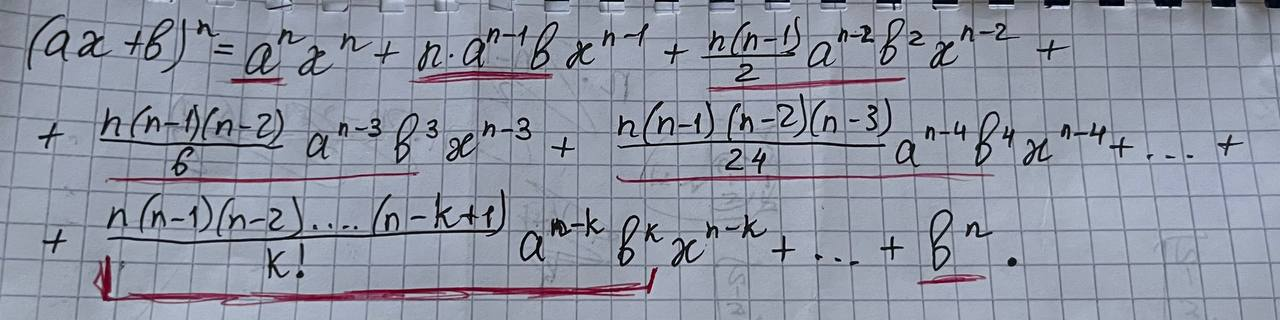 (ax + b)ⁿ = aⁿxⁿ + n·aⁿ⁻¹bxⁿ⁻¹ + n(n-1)/2 aⁿ⁻²b²xⁿ⁻² +
+ n(n-1)(n-2)/6 aⁿ⁻³b³xⁿ⁻³ + n(n-1)(n-2)(n-3)/24 aⁿ⁻⁴b⁴xⁿ⁻⁴ + ... +
+ n(n-1)(n-2)....(n-k+1)/k! aⁿ⁻ᵏbᵏxⁿ⁻ᵏ + ... + bⁿ.